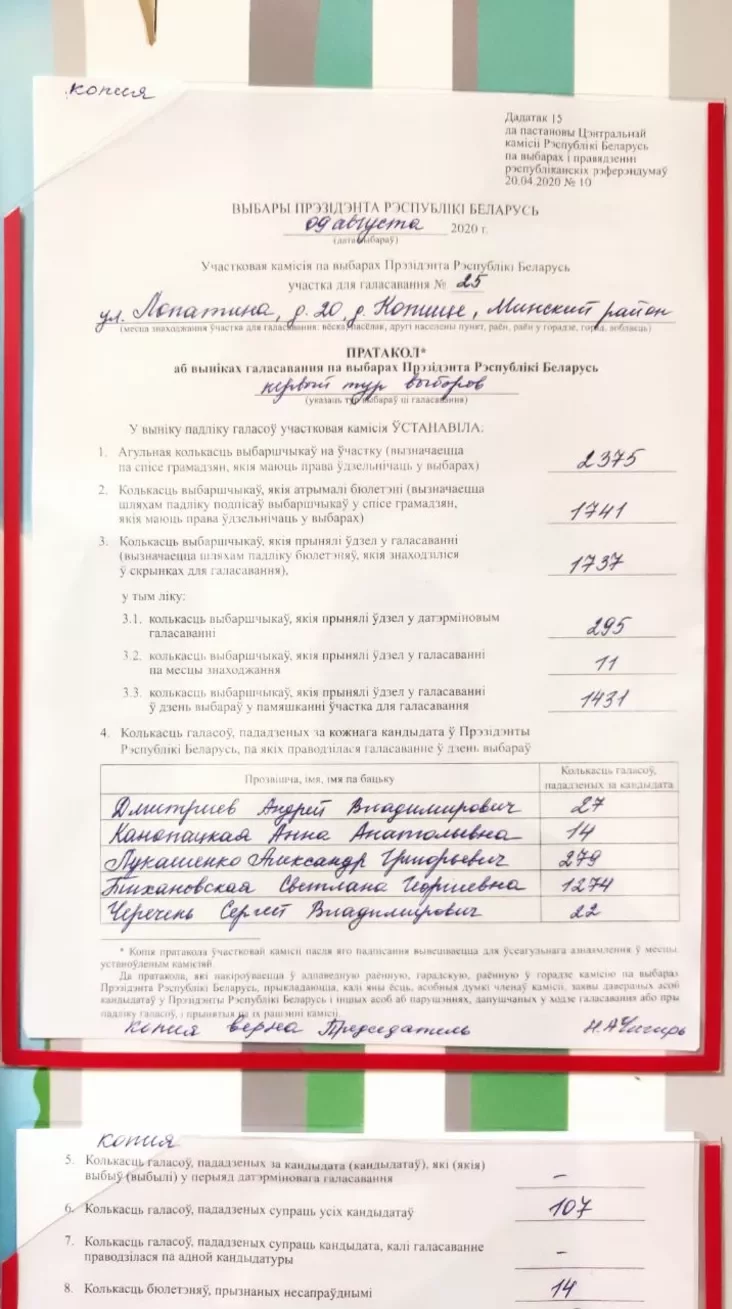 копия
Дадатак 15
да пастановы Цэнтральнай
камісіі Рэспублікі Беларусь
па выбарах і правядзенні
рэспубліканскіх рэферэндумаў
20.04.2020 № 10
ВЫБАРЫ ПРЭЗІДЭНТА РЭСПУБЛІКІ БЕЛАРУСЬ
09 августа 2020 г.
(дата выбараў)
Участковая камісія па выбарах Прэзідэнта Рэспублікі Беларусь
участка для галасавання № 25
ул. Лопатина, д. 20, д. Копище, Минский район
(месца знаходжання ўчастка для галасавання: вёска, пасёлак, другі населены пункт, раён, раён у горадзе, горад, вобласць)
ПРАТАКОЛ*
аб выніках галасавання па выбарах Прэзідэнта Рэспублікі Беларусь
первый тур выборов
(указаць тур выбараў ці галасавання)
У выніку падліку галасоў участковая камісія ЎСТАНАВІЛА:
1. Агульная колькасць выбаршчыкаў на ўчастку (вызначаецца
па спісе грамадзян, якія маюць права ўдзельнічаць у выбарах) 2375
2. Колькасць выбаршчыкаў, якія атрымалі бюлетэні (вызначаецца
шляхам падліку подпісаў выбаршчыкаў у спісе грамадзян,
якія маюць права ўдзельнічаць у выбарах) 1741
3. Колькасць выбаршчыкаў, якія прынялі ўдзел у галасаванні
(вызначаецца шляхам падліку бюлетэняў, якія знаходзіліся
ў скрынках для галасавання), 1737
у тым ліку:
3.1. колькасць выбаршчыкаў, якія прынялі ўдзел у датэрміновым
галасаванні 295
3.2. колькасць выбаршчыкаў, якія прынялі ўдзел у галасаванні
па месцы знаходжання 11
3.3. колькасць выбаршчыкаў, якія прынялі ўдзел у галасаванні
ў дзень выбараў у памяшканні ўчастка для галасавання 1431
4. Колькасць галасоў, пададзеных за кожнага кандыдата ў Прэзідэнты
Рэспублікі Беларусь, па якіх праводзілася галасаванне ў дзень выбараў
Прозвішча, імя, імя па бацьку Колькасць галасоў,
пададзеных за кандыдата
Дмитриев Андрей Владимирович 27
Канопацкая Анна Анатольевна 14
Лукашенко Александр Григорьевич 279
Тихановская Светлана Георгиевна 1274
Черечень Сергей Владимирович 22
* Копія пратакола ўчастковай камісіі пасля яго падпісання вывешваецца для ўсеагульнага азнаямлення ў месцы,
устаноўленым камісіяй.
Да пратакола, які накіроўваецца ў адпаведную раённую, гарадскую, раённую ў горадзе камісію па выбарах
Прэзідэнта Рэспублікі Беларусь, прыкладаюцца, калі яны ёсць, асобныя думкі членаў камісіі, заявы давераных асоб
кандыдатаў у Прэзідэнты Рэспублікі Беларусь і іншых асоб аб парушэннях, дапушчаных у ходзе галасавання або пры
падліку галасоў, і прынятыя па іх рашэнні камісіі.
копия верна Председатель Н.А Чигирь
копия
5. Колькасць галасоў, пададзеных за кандыдата (кандыдатаў), які (якія)
выбыў (выбылі) у перыяд датэрміновага галасавання –
6. Колькасць галасоў, пададзеных супраць усіх кандыдатаў 107
7. Колькасць галасоў, пададзеных супраць кандыдата, калі галасаванне
праводзілася па адной кандыдатуры –
8. Колькасць бюлетэняў, прызнаных несапраўднымі 14